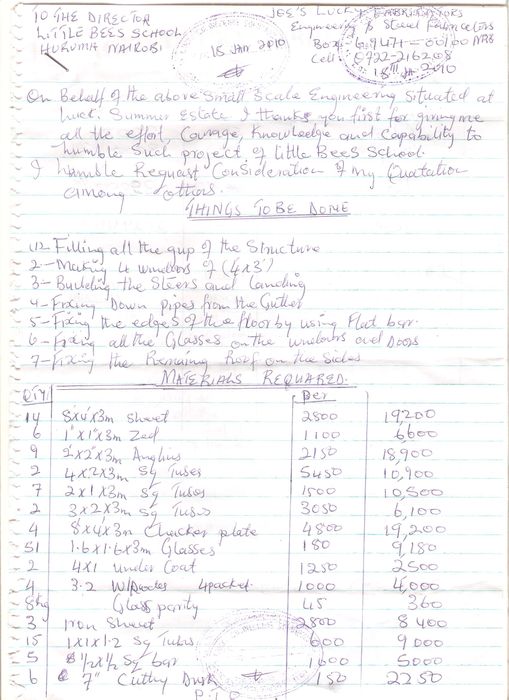 TO THE DIRECTOR
LITTLE BEES SCHOOL
HURUMA NAIROBI
JOE'S LUCKY FABRICATORS
Engineering & Steel Fabricators
Box 69471-00100 NRB
Cell: 0722-216208
15 JAN 2010
On Behalf of the above Small Scale Engineering Situated at
Lucky Summer Estate I thanks you first for giving me
all the effort, Courage, Knowledge and capability to
humble Such project of Little Bees School.
I humble Request Consideration of My Quotation
among others.
THINGS TO BE DONE
1- Filling all the gup of the Structure
2- Making 4 windors of (4x3')
3- Building the Steers and Landing
4- Fixing Down pipes from the Gutter
5- Fixing the edges of the floor by using Flat bar.
6- Fixing all the Glasses on the windows and Doors
7- Fixing the Remaining Roof on the Sides
MATERIALS REQUARED.
QTY per
14 8x4x3m Sheet 2800 19,200
6 1"x1"x3m Zed 1100 6600
9 2"x2"x3m Anglius 2150 18,900
2 4x2x3m Sq Tubes 5450 10,900
7 2x1x3m Sq Tubes 1500 10,500
2 3x2x3m Sq Tubes 3050 6,100
4 8x4x3m Checker plate 4800 19,200
51 1.6x1.6x3m Glasses 180 9,180
2 4x1 under Coat 1250 2500
4 3.2 4packet 1000 4,000
8kg Glass parity 45 360
3 Iron Sheet 2800 8400
15 1x1x1.2 Sq Tubes 600 9000
5 1/2x1/2 Sq bar 1000 5000
6 7" Cuttny Dusk 150 2250
P.T.O